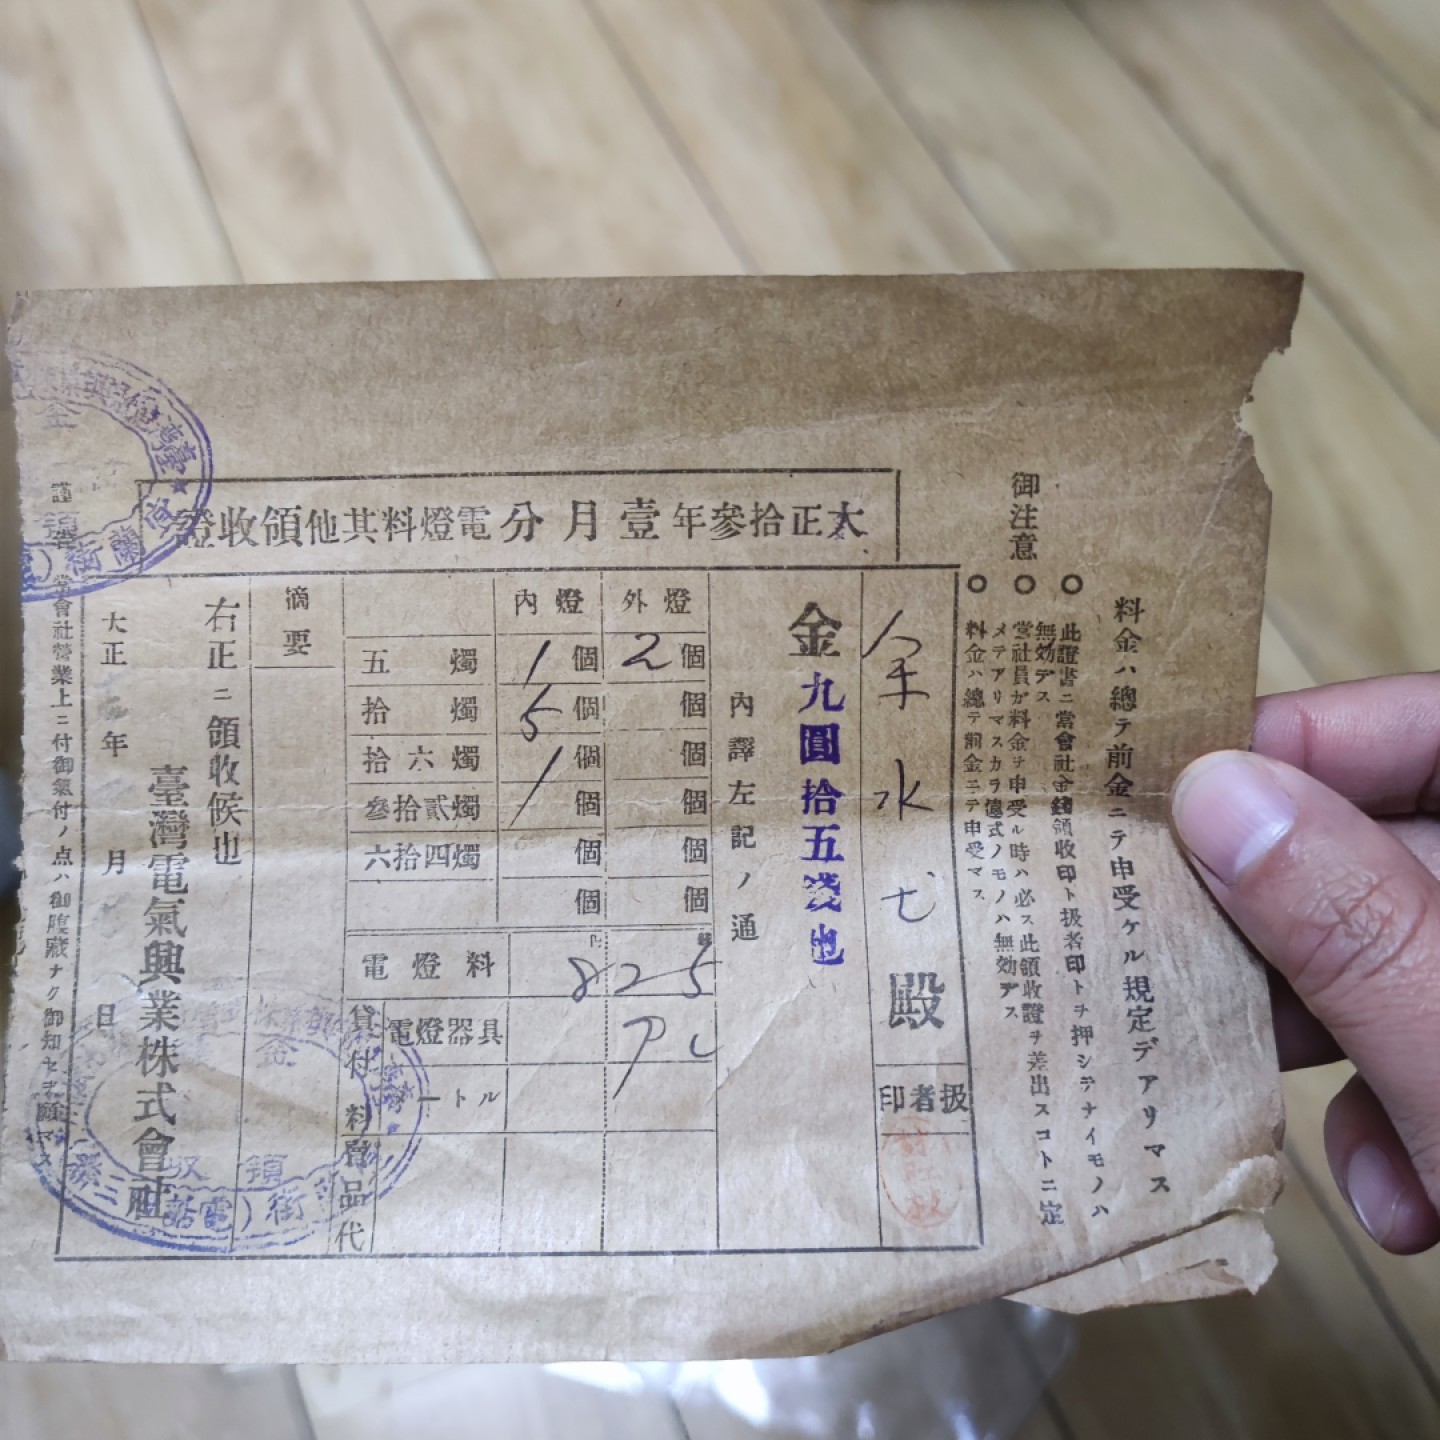 御注意
料金ハ總テ前金ニテ申受ケル規定デアリマス
○此證書ニ當會社金錢領收印ト扱者印トヲ押シテナイモノハ
無効デス
○當社員ガ料金ヲ申受ル時ハ必ス此領收證ヲ差出スコトニ定
メテアリマスカラ儀式ノモノハ無効デス
○料金ハ總テ前金ニテ申受マス
大正拾參年壹月分電燈料其他領收證
水 殿
扱者印
金九圓拾五錢也
內譯左記ノ通
外燈
內燈
五燭 1個 2個
拾燭 5個 個
拾六燭 1個 個
參拾貳燭 1個 個
六拾四燭 個 個
個 個
電燈料 825
貸付料 電燈器具 90
メートル
賣品代
摘要
右正ニ領收候也
臺灣電氣興業株式會社
大正 年 月 日
當會社營業上ニ付御氣付ノ点ハ御腹藏ナク御知セヲ願マス